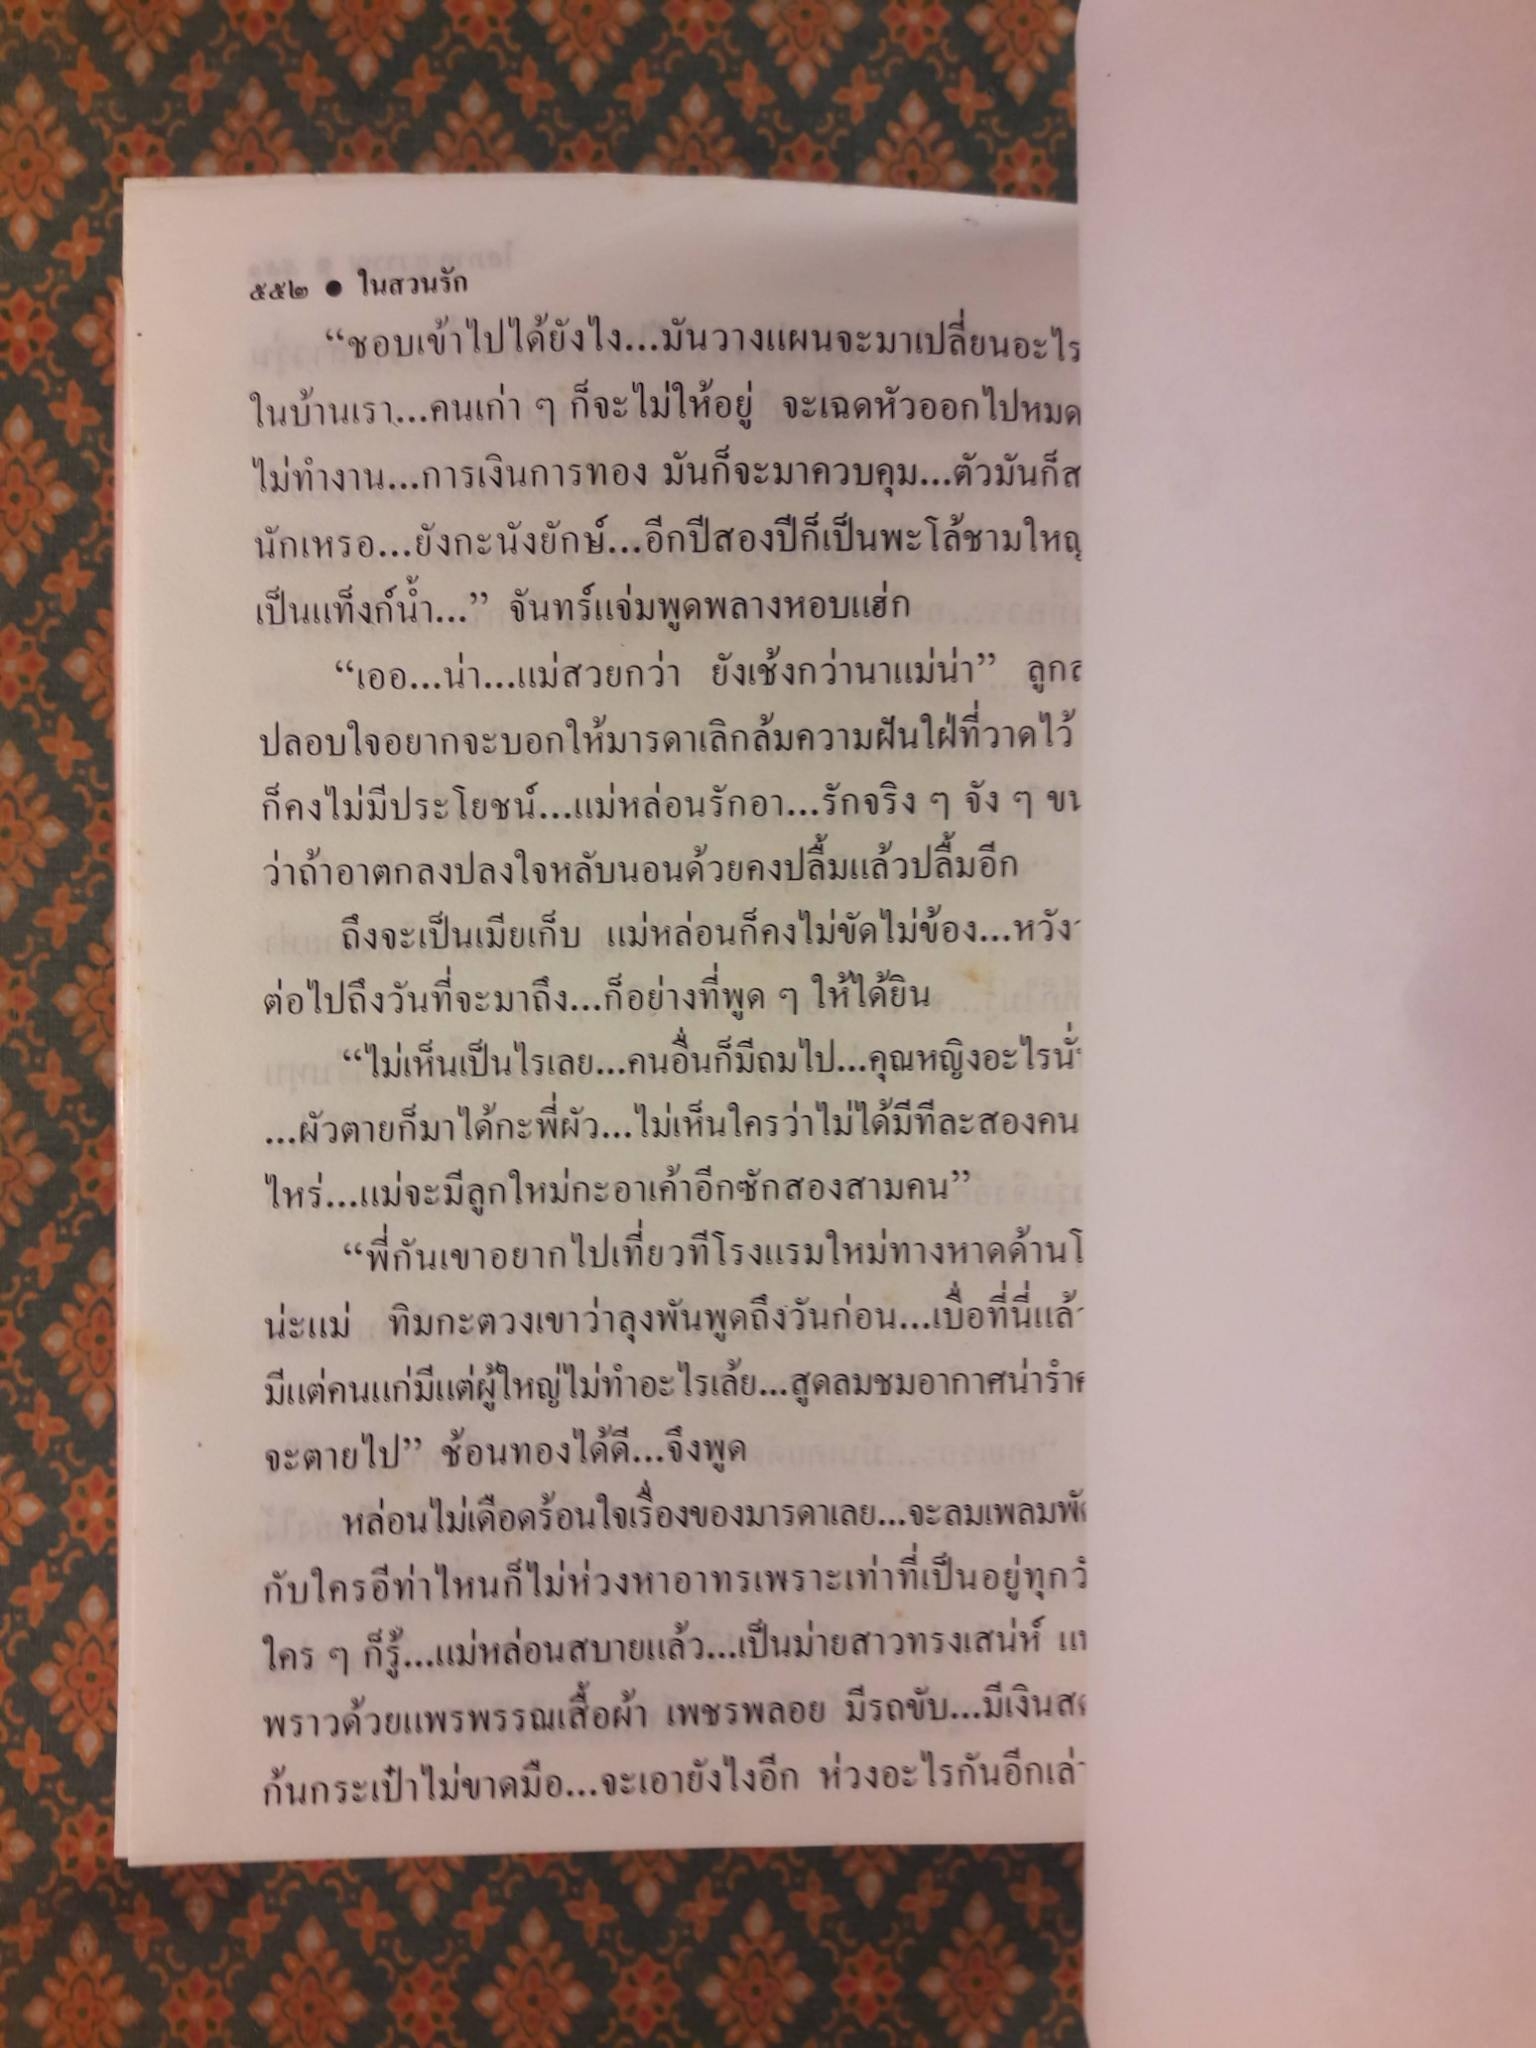 ๕๕๒ ● ในสวนรัก
“ชอบเข้าไปได้ยังไง...มันวางแผนจะมาเปลี่ยนอะไร
ในบ้านเรา...คนเก่า ๆ ก็จะไม่ให้อยู่ จะเฉดหัวออกไปหมด
ไม่ทำงาน...การเงินการทอง มันก็จะมาควบคุม...ตัวมันก็ส
นักเหรอ...ยังกะนังยักษ์...อีกปีสองปีก็เป็นพะโล้ชามใหญ
เป็นแท็งก์น้ำ...” จันทร์แจ่มพูดพลางหอบแฮ่ก
“เออ...น่า...แม่สวยกว่า ยังเช้งกว่านาแม่น่า” ลูกส
ปลอบใจอยากจะบอกให้มารดาเลิกล้มความฝันใฝ่ที่วาดไว้
ก็คงไม่มีประโยชน์...แม่หล่อนรักอา...รักจริง ๆ จัง ๆ ขน
ว่าถ้าอาตกลงปลงใจหลับนอนด้วยคงปลื้มแล้วปลื้มอีก
ถึงจะเป็นเมียเก็บ แม่หล่อนก็คงไม่ขัดไม่ข้อง...หวัง
ต่อไปถึงวันที่จะมาถึง...ก็อย่างที่พูด ๆ ให้ได้ยิน
“ไม่เห็นเป็นไรเลย...คนอื่นก็มีถมไป...คุณหญิงอะไรนั่
...ผัวตายก็มาได้กะพี่ผัว...ไม่เห็นใครว่าไม่ได้มีทีละสองคน
ไหร่...แม่จะมีลูกใหม่กะอาเค้าอีกซักสองสามคน”
“พี่กันเขาอยากไปเที่ยวทีโรงแรมใหม่ทางหาดด้านโ
น่ะแม่ ทิมกะตวงเขาว่าลุงพันพูดถึงวันก่อน...เบื่อที่นี่แล้
มีแต่คนแก่มีแต่ผู้ใหญ่ไม่ทำอะไรเล้ย...สูดลมชมอากาศน่ารำค
จะตายไป” ช้อนทองได้ดี...จึงพูด
หล่อนไม่เดือดร้อนใจเรื่องของมารดาเลย...จะลมเพลมพั
กับใครอีท่าไหนก็ไม่ห่วงหาอาทรเพราะเท่าที่เป็นอยู่ทุกว
ใคร ๆ ก็รู้...แม่หล่อนสบายแล้ว...เป็นม่ายสาวทรงเสน่ห์ แ
พราวด้วยแพรพรรณเสื้อผ้า เพชรพลอย มีรถขับ...มีเงินส
ก้นกระเป๋าไม่ขาดมือ...จะเอายังไงอีก ห่วงอะไรกันอีกเล่